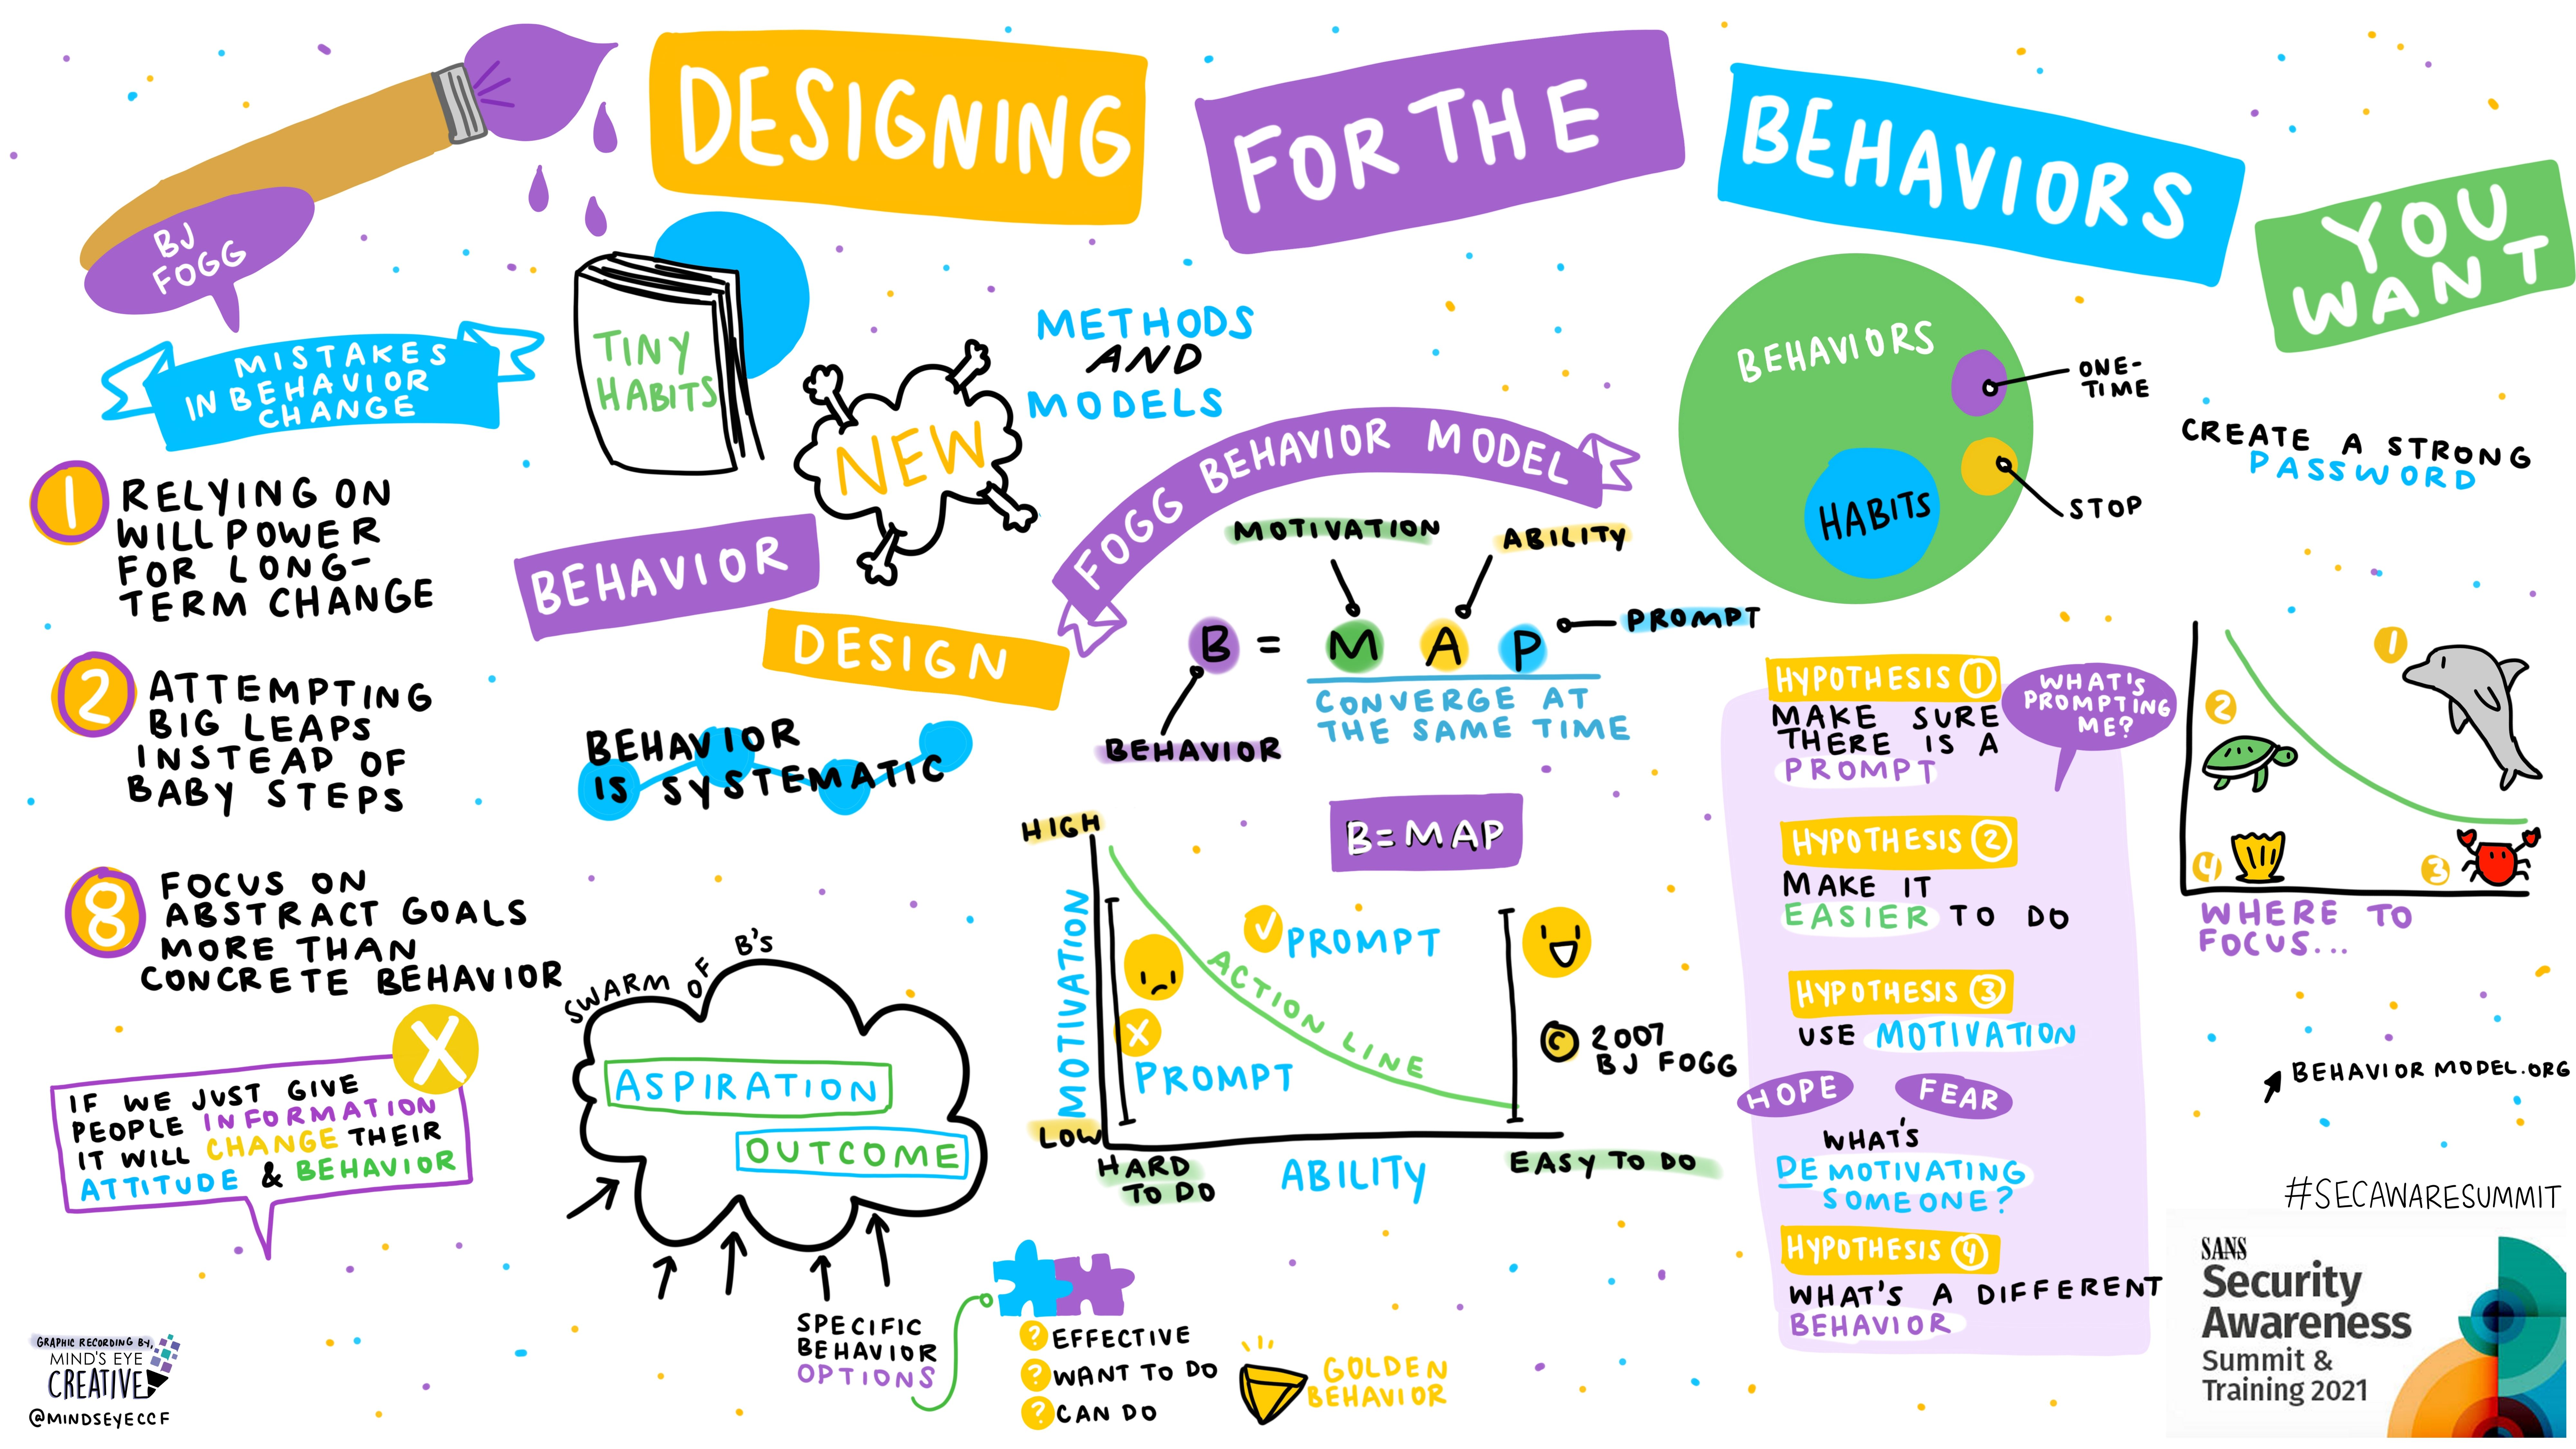 DESIGNING
FOR THE
BEHAVIORS
YOU
WANT
BJ
FOGG
MISTAKES
IN BEHAVIOR
CHANGE
1
RELYING ON
WILLPOWER
FOR LONG-
TERM CHANGE
2
ATTEMPTING
BIG LEAPS
INSTEAD OF
BABY STEPS
8
FOCUS ON
ABSTRACT GOALS
MORE THAN
CONCRETE BEHAVIOR
X
IF WE JUST GIVE
PEOPLE INFORMATION
IT WILL CHANGE THEIR
ATTITUDE & BEHAVIOR
GRAPHIC RECORDING BY,
MIND'S EYE
CREATIVE
@MINDSEYECCF
TINY
HABITS
NEW
METHODS
AND
MODELS
BEHAVIOR
DESIGN
BEHAVIOR
IS SYSTEMATIC
SWARM OF B'S
ASPIRATION
OUTCOME
SPECIFIC
BEHAVIOR
OPTIONS
? EFFECTIVE
? WANT TO DO
? CAN DO
GOLDEN
BEHAVIOR
FOGG BEHAVIOR MODEL
MOTIVATION
ABILITY
B = M A P
PROMPT
CONVERGE AT
THE SAME TIME
BEHAVIOR
B=MAP
HIGH
MOTIVATION
LOW
PROMPT
ACTION LINE
X
PROMPT
HARD
TO DO
ABILITY
EASY TO DO
© 2007
BJ FOGG
BEHAVIORS
HABITS
ONE-
TIME
STOP
CREATE A STRONG
PASSWORD
HYPOTHESIS 1
MAKE SURE
THERE IS A
PROMPT
WHAT'S
PROMPTING
ME?
HYPOTHESIS 2
MAKE IT
EASIER TO DO
HYPOTHESIS 3
USE MOTIVATION
HOPE
FEAR
WHAT'S
DEMOTIVATING
SOMEONE?
HYPOTHESIS 4
WHAT'S A DIFFERENT
BEHAVIOR
1
2
4
3
WHERE TO
FOCUS...
BEHAVIOR MODEL.ORG
#SECAWARESUMMIT
SANS
Security
Awareness
Summit &
Training 2021